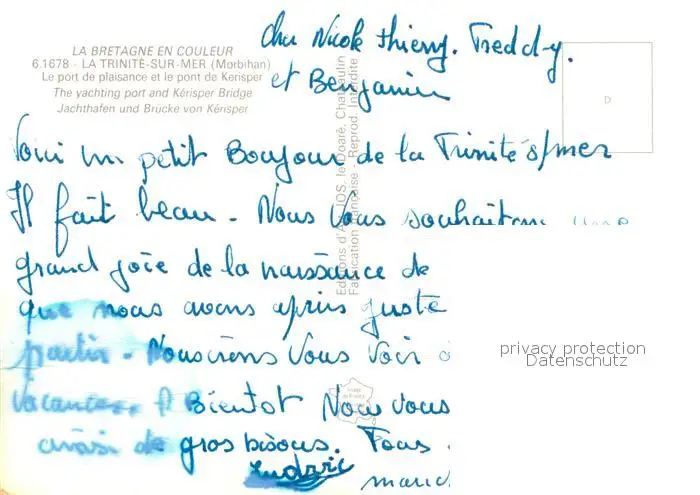 LA BRETAGNE EN COULEUR
6.1678 - LA TRINITÉ-SUR-MER (Morbihan)
Le port de plaisance et le pont de Kerisper
The yachting port and Kérisper Bridge
Jachthafen und Brücke von Kérisper
cher Nicole Thierry. Freddy.
et Benjamin
Voici un petit Boujour de la Trinité s/mer
Il fait beau - Nous Vous souhaitons une
grand joie de la naissance de
que nous avons apris juste
partir - Nous irons Vous Voir
vacances A Bientot Nous vous
de gros bisous. Tous
Ludovic
Editions d'Art JOS le Doaré, Chateaulin
Fabrication Française - Reprod. Interdite
privacy protection
Datenschutz